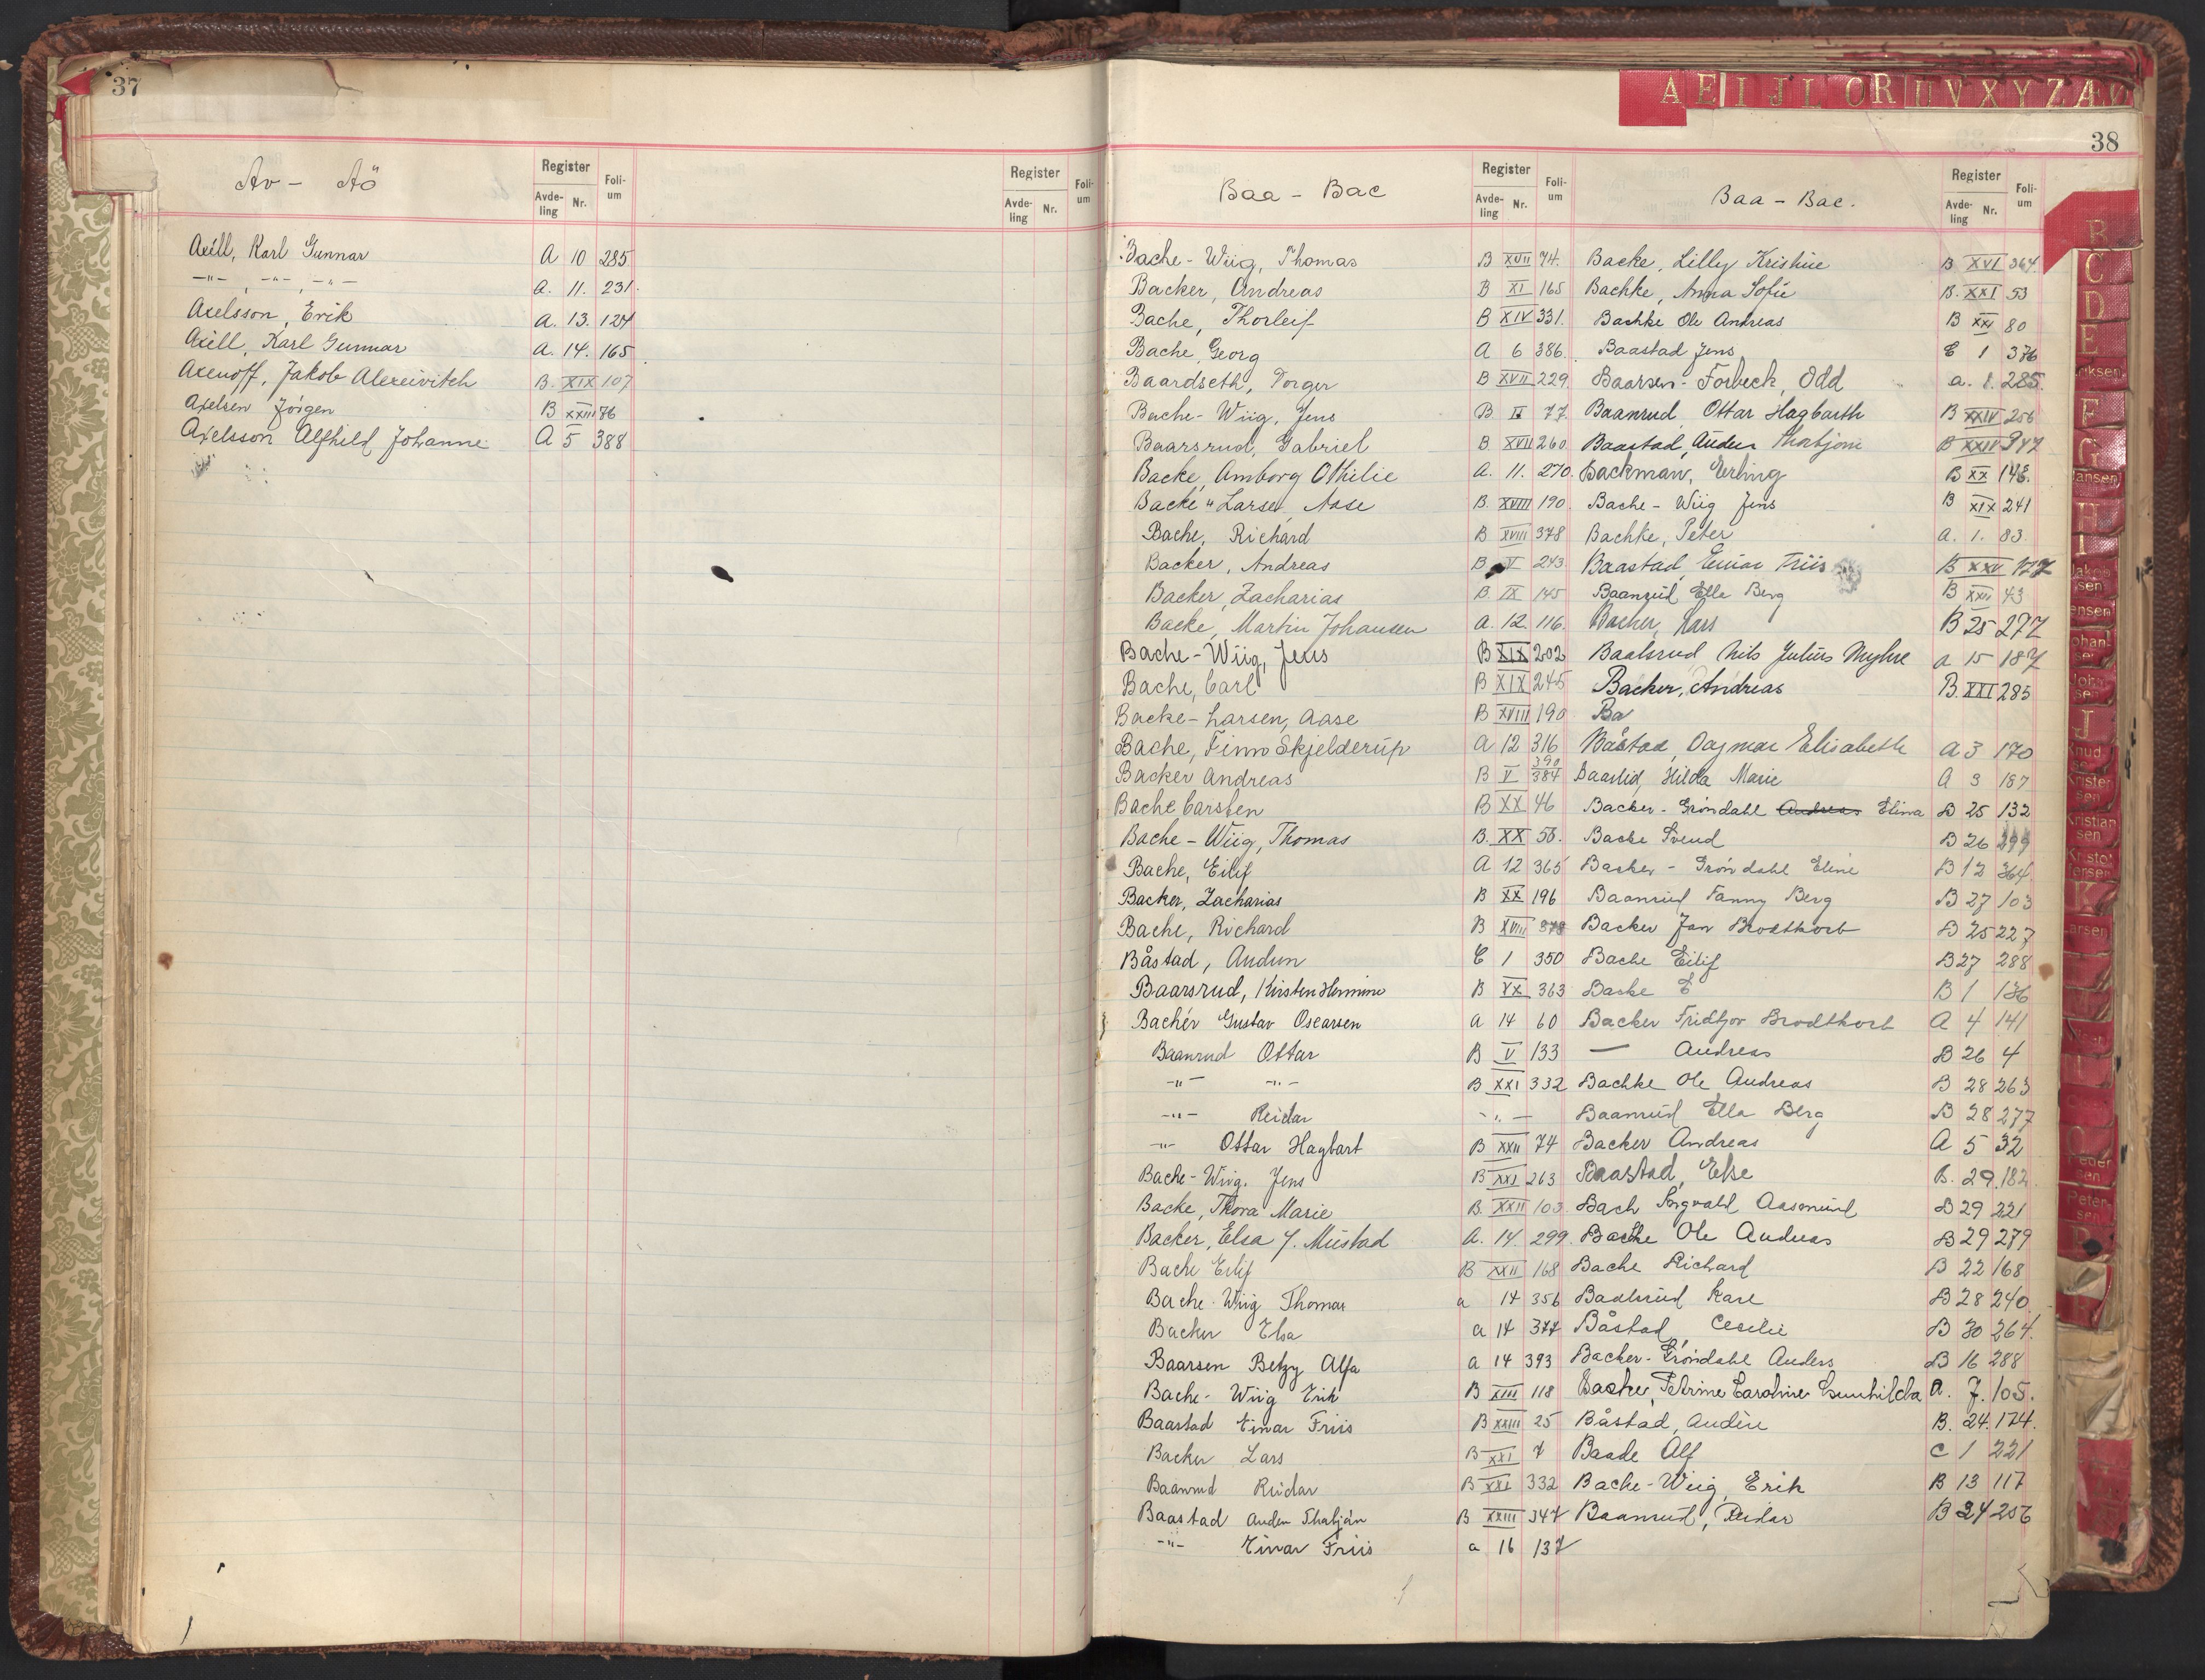 37
Av - Aö
Register
Avde-ling Nr.
Foli-um
Register
Avde-ling Nr.
Foli-um
Axéll, Karl Gunnar A 10 285
-"- , -"- , -"- A. 11. 231.
Axelsson, Erik A. 13. 124
Axéll, Karl Gunnar A. 14. 165
Axenoff, Jakob Alexeivitch B. XIX 107
Axelsen Jörgen B XXIII 76
Axelsson Alfhild Johanne A 5 388
A E I J L O R U V X Y Z Æ
38
Baa - Bac
Register
Avde-ling Nr.
Foli-um
Bache-Wiig, Thomas B XVII 74.
Backer, Andreas B XI 165
Bache, Thorleif B XIV 331.
Bache, Georg A 6 386.
Baardseth, Torger B XVII 229
Bache-Wiig, Jens B II 77
Baarsrud, Gabriel B. XVII 260
Backe, Amborg Othilie A. 11. 270.
Backe "Larsen, Aase B. XVIII 190
Bache, Richard B XVIII 378
Backer, Andreas B V 243
Backer, Zacharias B. IX 145
Backe, Martin Johansen A. 12. 116.
Bache-Wiig, Jens B XIX 202
Bache, Carl B XIX 245
Backe-Larsen, Aase B XVIII 190
Bache, Finn Skjelderup A 12 316
Backer Andreas B V 390 384
Bache Carsten B XX 46
Bache-Wiig, Thomas B. XX 58.
Bache, Eilif A 12 365
Backer, Zacharias B XX 196
Bache, Richard B XVIII 378
Båstad, Audun C 1 350
Baarsrud, Kirsten Hermine B XX 363
Bachér Gustav Oscarsen A 14 60
Baanrud Ottar B V 133
-"- -"- B XXI 332
-"- Reidar -"-
-"- Ottar Hagbart B XXII 74
Bache-Wiig. Jens B XXI 263
Backe, Thora Marie B. XXII 103
Backer, Elsa f. Mustad A. 14. 299.
Bache Eilif B XXII 168
Bache-Wiig Thomas a 14 356
Backer Elsa a 14 377
Baarsen Betzy Alfa a 14 393
Bache-Wiig Erik B XIII 118
Baastad Einar Friis B XXIII 25
Backer Lars B XXI 7
Baanrud Reidar B XXI 332
Baastad Auden Thorbjørn B XXIII 347
-"- Einar Friis a 16 137
Baa - Bac.
Register
Avde-ling Nr.
Foli-um
Backe, Lilly Kristine B XVI 364.
Bachke, Anna Sofie B. XXI 53
Bachke Ole Andreas B XXI 80
Baastad Jens C 1 376
Baarsen-Forbeck, Odd a. 1. 285.
Baanrud Ottar Hagbarth B XXIV 256
Baastad, Auden Thorbjørn B XXIII 347
Backman, Erling B XX 148.
Bache-Wiig Jens B XIX 241
Bachke, Peter A. 1. 83.
Baastad, Einar Friis B XXV 177
Baanrud Ella Berg B XXII 43
Backer, Lars B 25 277
Baalsrud Nils Julius Myhre a 15 187
Backer, Andreas B. XXI 285
Ba
Båstad, Dagmar Elisabeth A 3 170
Baarlid, Hilda Marie A 3 187
Backer-Gröndahl Andreas Elina B 25 132
Backe Svend B 26 299
Backer-Gröndahl Eline B 12 364.
Baanrud Fanny Berg B 27 103
Backer Jan Brodtkorb B 25 227
Bache Eilif B 27 288
Backe E B 1 136
Backer Fridtjov Brodtkorb A 4 141
— Andreas B 26 4
Bachke Ole Andreas B 28 263
Baanrud Ella Berg B 28 277
Backer Andreas A 5 32
Baastad, Else B. 29. 182
Bach Aasmund B 29 221
Bachke Ole Andreas B 29 279
Bache Richard B 22 168
Baalsrud Kare B 28 240
Båstad, Cecilie B 30 264.
Backer-Gröndahl Anders B 16 288
Backer, Petrine Caroline Gunhilda A. 7. 105.
Båstad, Auden B. 24. 174.
Baade Alf C 1 221
Bache-Wiig, Erik B 13 117
Baanrud, Reidar B 24 256
B
C
D
E
Eriksen
F
G
Hansen
H
I
Jakobsen
Jensen
Johansen
Johnsen
J
Knudsen
Kristensen
Kristiansen
Kristoffersen
K
Larsen
Pedersen
Petersen